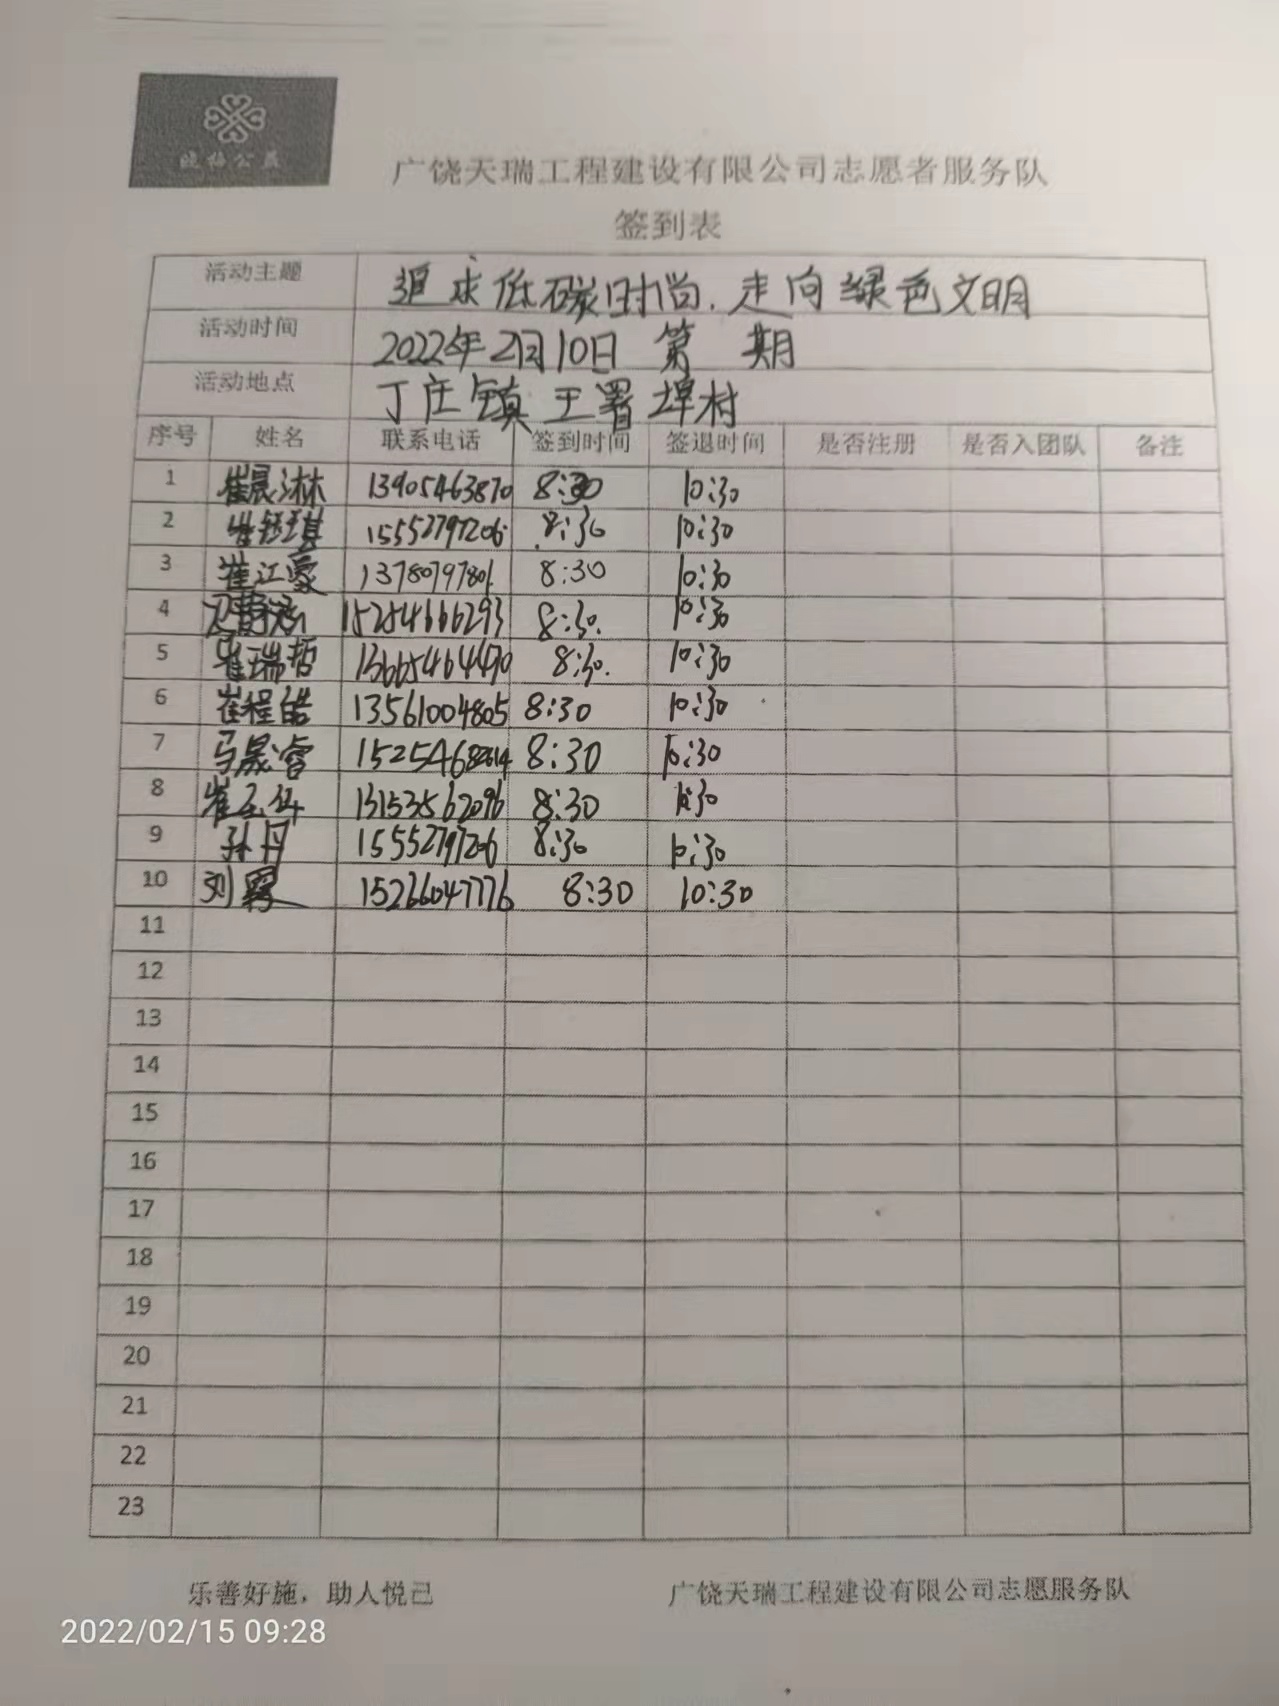 晓梅公益
广饶天瑞工程建设有限公司志愿者服务队
签到表
活动主题 追求低碳时尚.走向绿色文明
活动时间 2022年2月10日 第 期
活动地点 丁庄镇王署埠村
序号 姓名 联系电话 签到时间 签退时间 是否注册 是否入团队 备注
1 崔晨淋 13905463870 8:30 10:30
2 崔钰琪 15552797206 8:30 10:30
3 崔江豪 13780797801 8:30 10:30
4 15254666293 8:30. 10:30
5 崔瑞哲 13665464470 8:30. 10:30
6 崔程皓 13561004805 8:30 10:30
7 马晟睿 8:30 10:30
8 13153562096 8:30 10:30
9 孙丹 15552797206 8:30 10:30
10 刘霖 15266047776 8:30 10:30
11
12
13
14
15
16
17
18
19
20
21
22
23
乐善好施，助人悦己 广饶天瑞工程建设有限公司志愿服务队
2022/02/15 09:28